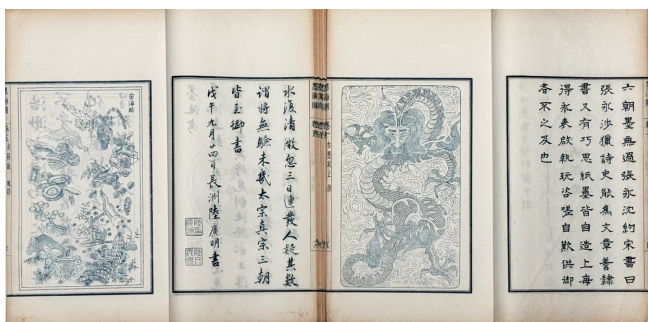 六朝墨無過張永沈約宋書曰
張永涉獵詩史能為文章善隸
書又有巧思紙墨皆自造上每
得永表啟執玩咨嗟自歎供御
者不之及也
水復清澈忽三日連發人疑其數
謂將無驗未幾太宗真宗三朝
皆至御書
戊午九月十四日長洲陸廣明書